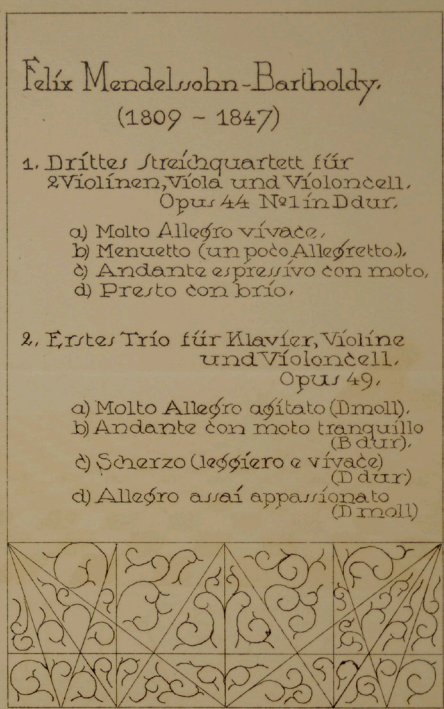 Felix Mendelssohn-Bartholdy.
(1809 - 1847)
1. Drittes Streichquartett für
2 Violinen, Viola und Violoncell.
Opus 44 № 1 in D dur.
a) Molto Allegro vivace.
b) Menuetto (un poco Allegretto.).
c) Andante espressivo con moto,
d) Presto con brio.
2. Erstes Trio für Klavier, Violine
und Violoncell.
Opus 49.
a) Molto Allegro agitato (D moll).
b) Andante con moto tranquillo
(B dur).
c) Scherzo (leggiero e vivace)
(D dur)
d) Allegro assai appassionato
(D moll)